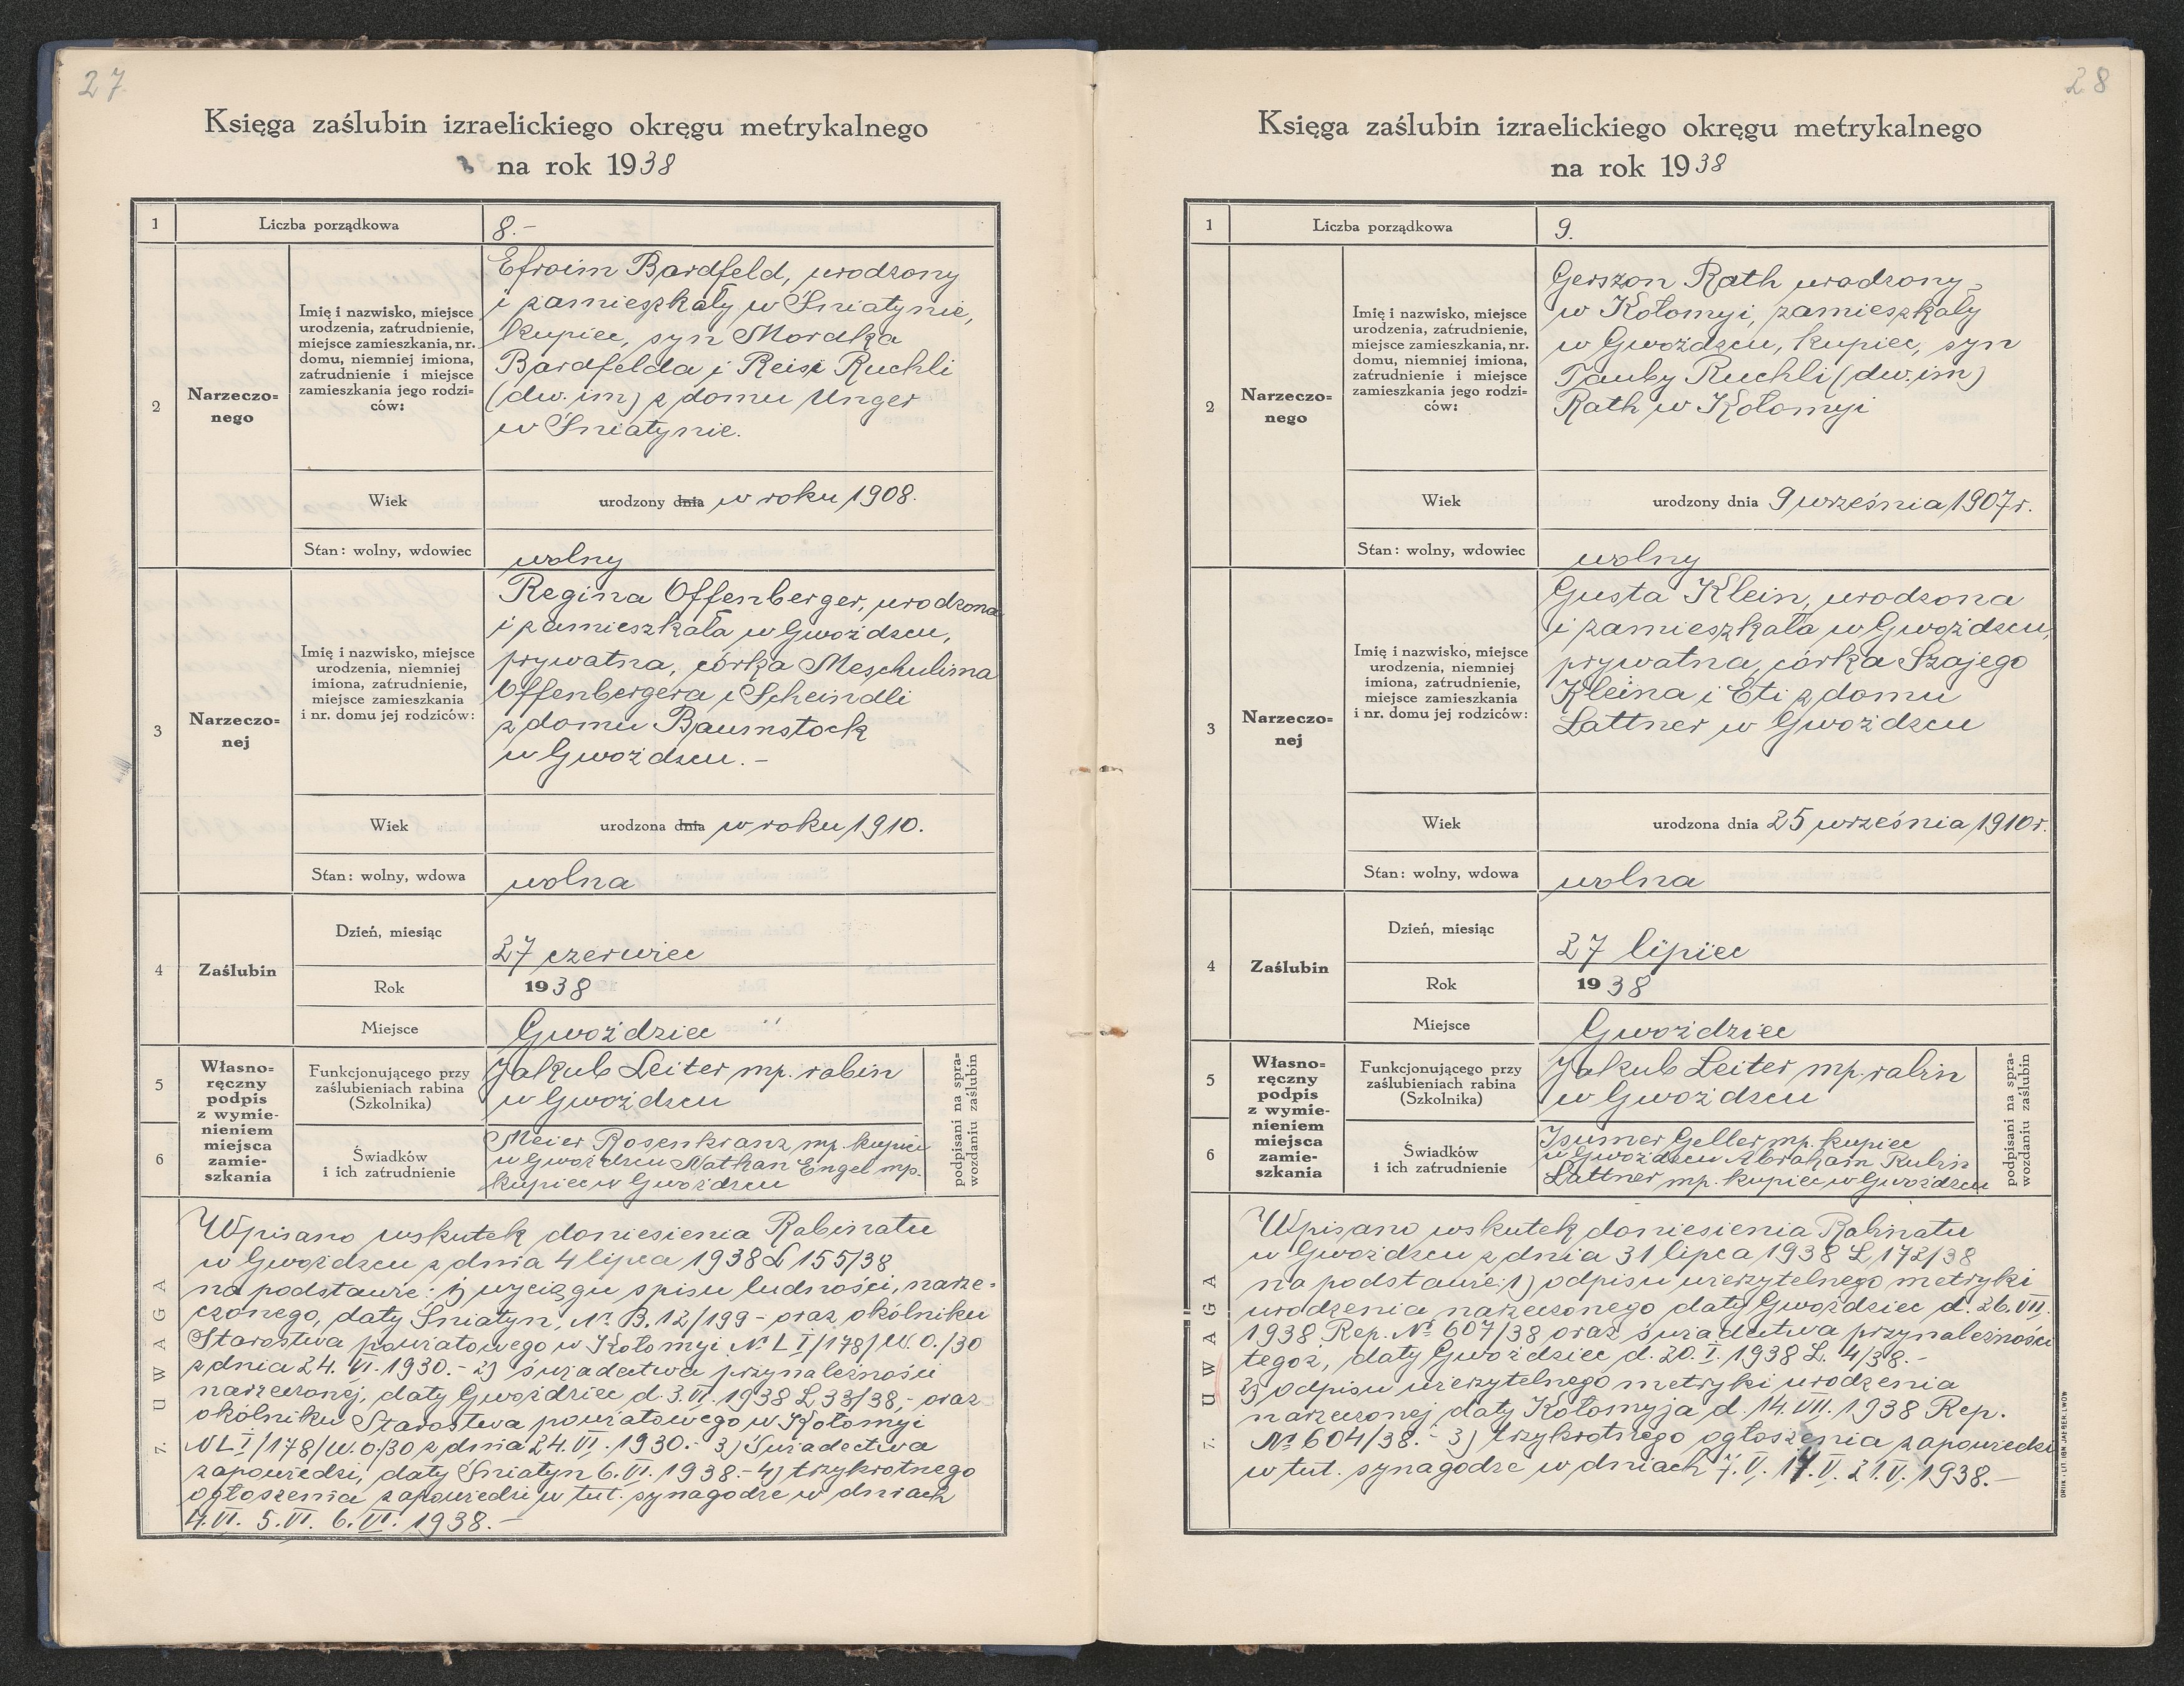 27
Księga zaślubin izraelickiego okręgu metrykalnego
na rok 1938
1
Liczba porządkowa
8.-
2
Narzeczo=
nego
Imię i nazwisko, miejsce
urodzenia, zatrudnienie,
miejsce zamieszkania, nr.
domu, niemniej imiona,
zatrudnienie i miejsce
zamieszkania jego rodzi-
ców:
Efroim Bardfeld, urodzony
i zamieszkały w Śniatynie,
kupiec, syn Mordka
Bardfelda i Reisi Ruchli
(dw. im) z domu Unger
w Śniatynie.
Wiek
urodzony dnia w roku 1908.
Stan: wolny, wdowiec
wolny
3
Narzeczo=
nej
Imię i nazwisko, miejsce
urodzenia, niemniej
imiona, zatrudnienie,
miejsce zamieszkania
i nr. domu jej rodziców:
Regina Offenberger, urodzona
i zamieszkała w Gwoźdzcu,
prywatna, córka Meschulima
Offenbergera i Scheindli
z domu Baumstock
w Gwoźdzcu.-
Wiek
urodzona dnia w roku 1910.
Stan: wolny, wdowa
wolna
4
Zaślubin
Dzień, miesiąc
27 czerwiec
Rok
1938
Miejsce
Gwoździec
5
6
Własno=
ręczny
podpis
z wymie-
nieniem
miejsca
zamie-
szkania
Funkcjonującego przy
zaślubieniach rabina
(Szkolnika)
Jakub Leiter mp. rabin
w Gwoźdzcu
Świadków
i ich zatrudnienie
Meier Rosenkranz mp. kupiec
w Gwoźdzcu Nathan Engel mp.
kupiec w Gwoźdzcu
podpisani na spra=
wozdaniu zaślubin
7. UWAGA
Wpisano wskutek doniesienia Rabinatu
w Gwoźdzcu z dnia 4 lipca 1938 L 155/38
na podstawie: 1) wyciągu spisu ludności, narze-
czonego, daty Śniatyn, № B. 12/199 - oraz okólniku
Starostwa powiatowego w Kołomyi № L I/178/W.O./30
z dnia 24. VI. 1930.- 2) świadectwa przynależności
narzeczonej, daty Gwoździec d. 3.VI. 1938 L 33/38,- oraz
okólniku Starostwa powiatowego w Kołomyi
№ L I/178/W.O/30 z dnia 24. VI. 1930.- 3) Świadectwa
zapowiedzi, daty Śniatyn 6. VI. 1938.- 4) trzykrotnego
ogłoszenia zapowiedzi w tut. synagodze w dniach
4. VI. 5. VI. 6. VI. 1938.-
28
Księga zaślubin izraelickiego okręgu metrykalnego
na rok 1938
1
Liczba porządkowa
9.
2
Narzeczo=
nego
Imię i nazwisko, miejsce
urodzenia, zatrudnienie,
miejsce zamieszkania, nr.
domu, niemniej imiona,
zatrudnienie i miejsce
zamieszkania jego rodzi-
ców:
Gerszon Rath urodzony
w Kołomyi, zamieszkały
w Gwoźdzcu, kupiec, syn
Tauby Ruchli (dw. im)
Rath w Kołomyi
Wiek
urodzony dnia 9 września 1907 r.
Stan: wolny, wdowiec
wolny
3
Narzeczo=
nej
Imię i nazwisko, miejsce
urodzenia, niemniej
imiona, zatrudnienie,
miejsce zamieszkania
i nr. domu jej rodziców:
Gusta Klein, urodzona
i zamieszkała w Gwoźdzcu,
prywatna, córka Szajego
Kleina i Eti z domu
Lattner w Gwoźdzcu
Wiek
urodzona dnia 25 września 1910 r.
Stan: wolny, wdowa
wolna
4
Zaślubin
Dzień, miesiąc
27 lipiec
Rok
1938
Miejsce
Gwoździec
5
6
Własno=
ręczny
podpis
z wymie-
nieniem
miejsca
zamie-
szkania
Funkcjonującego przy
zaślubieniach rabina
(Szkolnika)
Jakub Leiter mp. rabin
w Gwoźdzcu
Świadków
i ich zatrudnienie
Isumer Geller mp. kupiec
w Gwoźdzcu Abraham Rubin
Lattner mp. kupiec w Gwoźdzcu
podpisani na spra=
wozdaniu zaślubin
7. UWAGA
Wpisano wskutek doniesienia Rabinatu
w Gwoźdzcu z dnia 31 lipca 1938 L 172/38
na podstawie: 1) odpisu wierzytelnego metryki
urodzenia narzeczonego daty Gwoździec d. 26. VII.
1938 Rep. № 607/38 oraz świadectwa przynależności
tegoż, daty Gwoździec d. 20. I. 1938 L. 4/38.-
2) odpisu wierzytelnego metryki urodzenia
narzeczonej daty Kołomyja d. 14. VII. 1938 Rep.
№ 604/38.- 3) trzykrotnego ogłoszenia zapowiedzi
w tut. synagodze w dniach 7. V. 14. V. 21. V. 1938.-
DRUK. I LIT. IGN. JAEGER, LWÓW